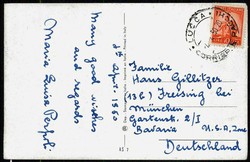 Many good wishes
and regards
Maria Luisa
Familie
Hans Gillitzer
(13b) Freising bei
München
Gartenstr. 2/I
Bavaria U.S.A. Zone
Deutschland
LUCCA